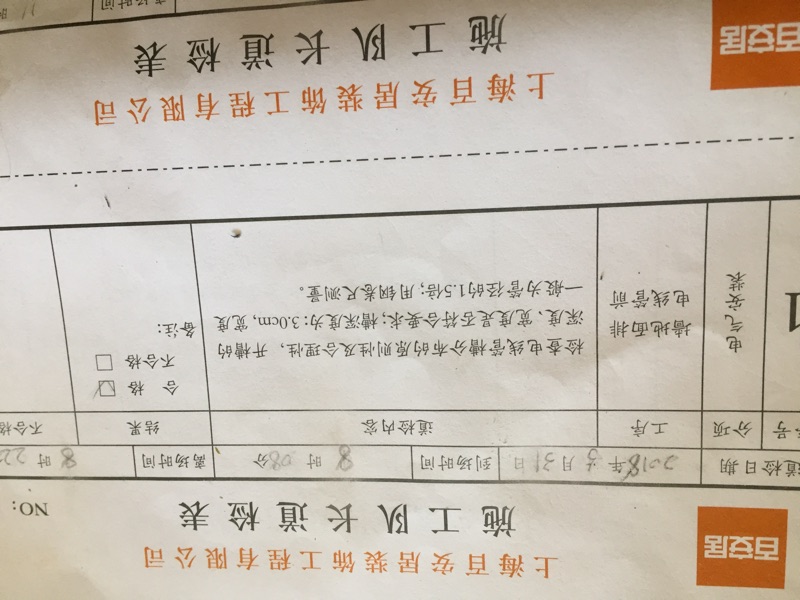 百安居
上海百安居装饰工程有限公司
施工队长道检表 NO:
道检日期 2018年3月31日 到场时间 8时08分 离场时间 8时22
号 分项 工序 道检内容 结果 不合格
1
电气安装
墙地面排
电线管前
检查电线管槽分布的原则性及合理性，开槽的
深度、宽度是否符合要求；槽深度为：3.0cm，宽度
一般为管径的1.5倍；用钢卷尺测量。
合 格 ☑
不合格 □
备注：
百安居
上海百安居装饰工程有限公司
施工队长道检表
离场时间 11